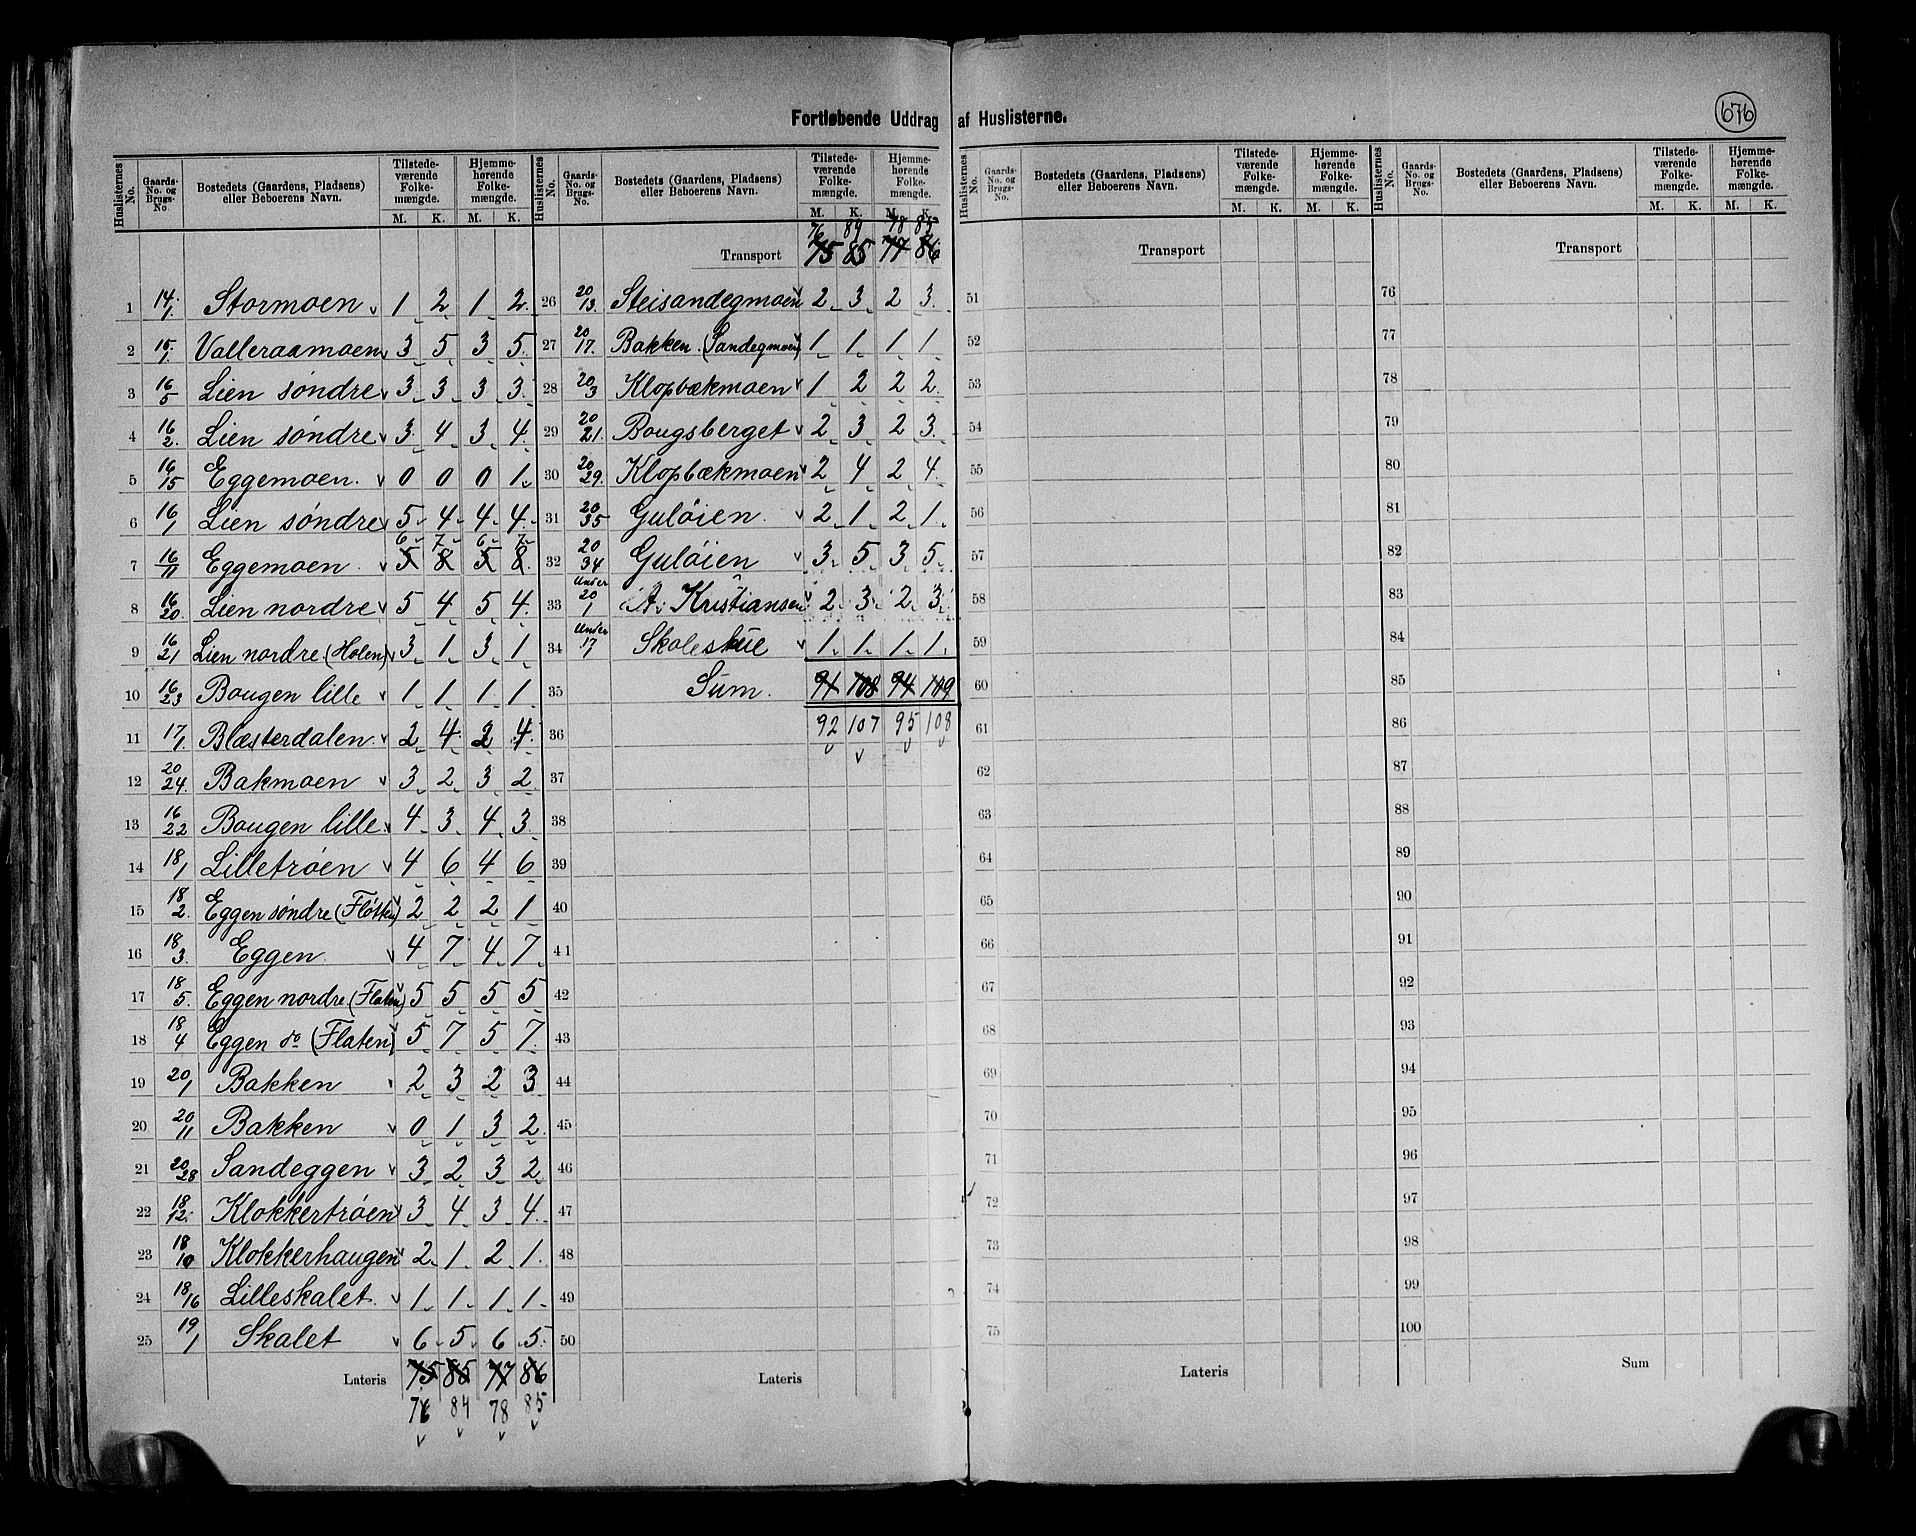 Fortløbende Uddrag af Huslisterne.
676
Huslisternes No. Gaards-No. og Brugs-No. Bostedets (Gaardens, Pladsens) eller Beboerens Navn. Tilstedeværende Folkemængde. M. K. Hjemmehørende Folkemængde. M. K.
1 14/1 Stormoen 1 2 1 2
2 15/1 Valleraamoen 3 5 3 5
3 16/5 Lien søndre 3 3 3 3
4 16/2 Lien søndre 3 4 3 4
5 16/15 Eggemoen 0 0 0 1
6 16/1 Lien søndre 5 4 4 4
6 7 6 7
7 16/11 Eggemoen 5 8 5 8
8 16/20 Lien nordre 5 4 5 4
9 16/21 Lien nordre (Holen) 3 1 3 1
10 16/23 Bougen lille 1 1 1 1
11 17/1 Blæsterdalen 2 4 2 4
12 20/24 Bakmoen 3 2 3 2
13 16/22 Bougen lille 4 3 4 3
14 18/1 Lilletrøen 4 6 4 6
15 18/2 Eggen søndre (Fløtten) 2 2 2 1
16 18/3 Eggen 4 7 4 7
17 18/5 Eggen nordre (Flaten) 5 5 5 5
18 18/4 Eggen do (Flaten) 5 7 5 7
19 20/1 Bakken 2 3 2 3
20 20/11 Bakken 0 1 3 2
21 20/28 Sandeggen 3 2 3 2
22 18/12 Klokkertrøen 3 4 3 4
23 18/10 Klokkerhaugen 2 1 2 1
24 18/16 Lilleskalet 1 1 1 1
25 19/1 Skalet 6 5 6 5
Lateris 75 85 77 86
76 84 78 85
Huslisternes No. Gaards-No. og Brugs-No. Bostedets (Gaardens, Pladsens) eller Beboerens Navn. Tilstedeværende Folkemængde. M. K. Hjemmehørende Folkemængde. M. K.
76 84 78 85
Transport 75 85 77 86
26 20/13 Steisandegmoen 2 3 2 3
27 20/17 Bakken (Sandegmoen) 1 1 1 1
28 20/3 Klopbækmoen 1 2 2 2
29 20/21 Bougsberget 2 3 2 3
30 20/29 Klopbækmoen 2 4 2 4
31 20/35 Guløien 2 1 2 1
32 20/34 Guløien 3 5 3 5
33 Under 20/1 A. Kristiansen 2 3 2 3
34 Under 17/1 Skolestue 1 1 1 1
35 Sum 91 108 94 109
36 92 107 95 108
37
38
39
40
41
42
43
44
45
46
47
48
49
50
Lateris
Huslisternes No. Gaards-No. og Brugs-No. Bostedets (Gaardens, Pladsens) eller Beboerens Navn. Tilstedeværende Folkemængde. M. K. Hjemmehørende Folkemængde. M. K.
Transport
51
52
53
54
55
56
57
58
59
60
61
62
63
64
65
66
67
68
69
70
71
72
73
74
75
Lateris
Huslisternes No. Gaards-No. og Brugs-No. Bostedets (Gaardens, Pladsens) eller Beboerens Navn. Tilstedeværende Folkemængde. M. K. Hjemmehørende Folkemængde. M. K.
Transport
76
77
78
79
80
81
82
83
84
85
86
87
88
89
90
91
92
93
94
95
96
97
98
99
100
Sum